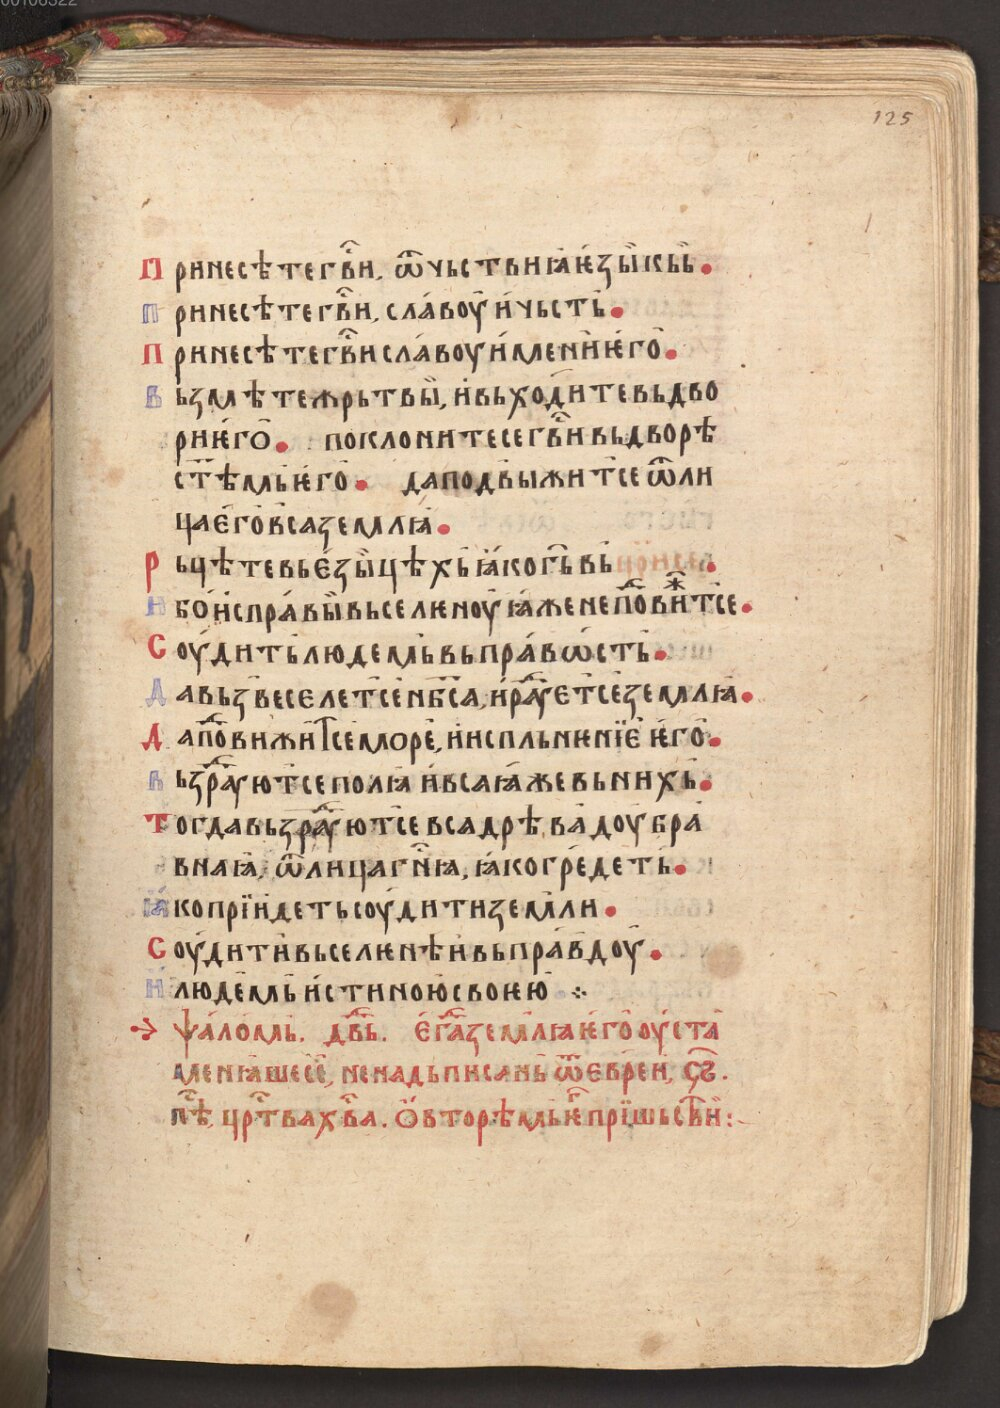 00106322
125
Принесѣте гв҃и, ѿчьствиꙗ ѥзы́кь.
Принесѣте гв҃и, сла́воу и҆ чьсть.
Принесѣте гв҃и сла́воу и҆мени ѥго̀.
Вьзмѣте жрьтвы, и҆ вьходи́те вь дво
ри ѥго̀. поклоните се гв҃и вь дворѣ
ст҃ѣмь ѥго̀. да подвыжит се ѿ ли
ца є҆го̀ вса землꙗ.
Рьцѣте вь є҆зы́цѣхь ꙗ҆ко гь҃
и҆бо и҆справы вьселѥноую ꙗ҆же не
Соу́дить людемь вь пра́вость.
Да вьзвеселет се нб҃са, и҆ рад̾уєт се землꙗ.
Да по́вижит се море, и҆ испльнѥнїе ѥго̀.
Вьзрад̾уют се полꙗ и҆ вса ꙗ҆же вь нихь.
Тогда вьзрад̾уют се вса дрѣва доубра
внаꙗ, ѿ лица гн҃ꙗ, ꙗ҆ко гре́деть.
Ꙗ҆ко прїидеть соу́дити земли.
Соу́дити вьселѥнѣи вь пра́вдоу.
И҆ людемь и҆стиною своѥю
Ѱа́ломь. дв҃дь. є҆гда землꙗ ѥго̀ оу҆ста
вленꙗше се, ненадьписань ѿ еврей, ч҃ѕ.
црт҃ва хв҃а. Ѡ҆ вторѣмь ѥго̀ пришьствїи: